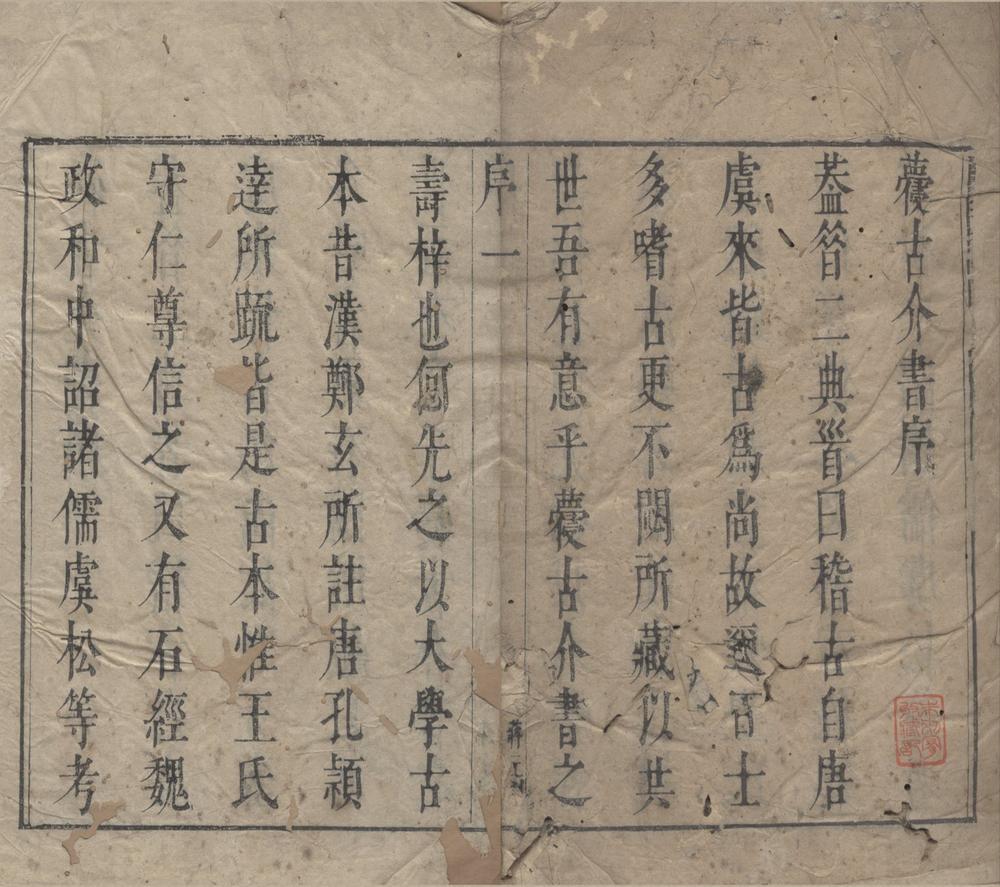 藑古介書序
葢晉二典晉曰稽古自唐
虞來皆古爲尚故士
多嗜古更不閟所藏以共
世吾有意乎藑古介書之
序一
壽梓也何先之以大學古
本昔漢鄭玄所註唐孔頴
達所䟽皆是古本惟王氏
守仁尊信之又有石經魏
政和中詔諸儒虞松等考